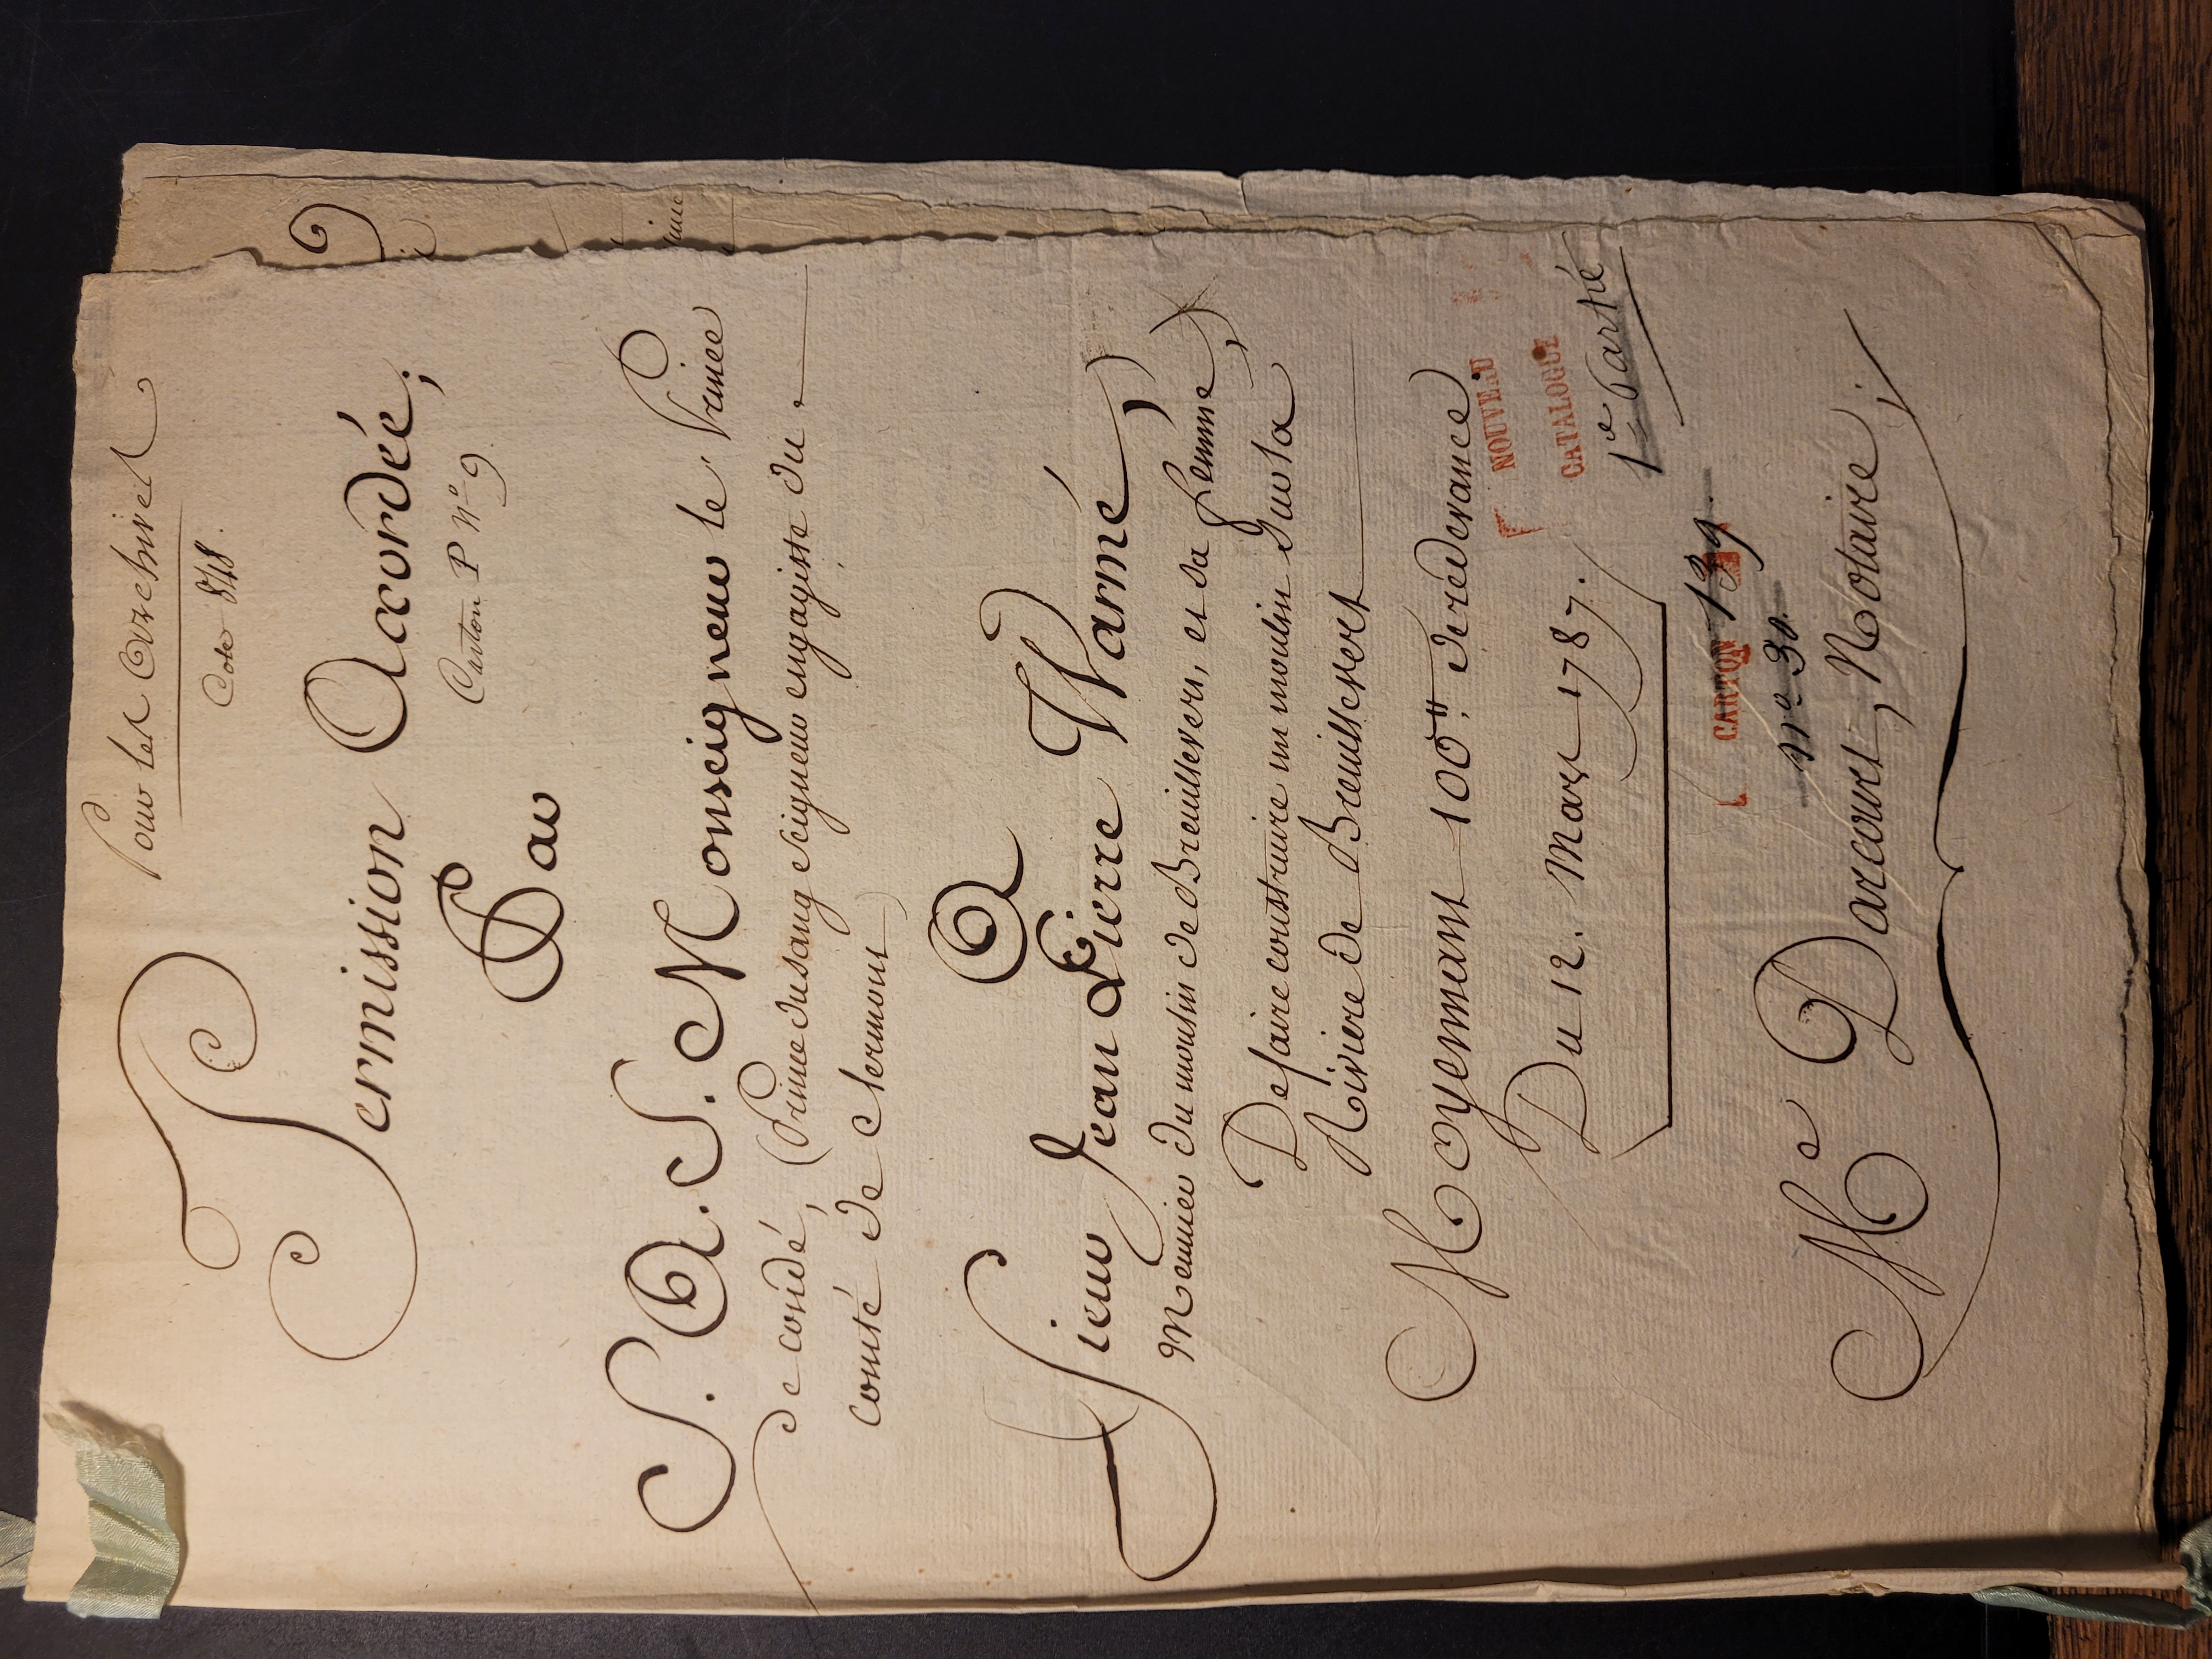 Pour les Archives
Cote 848.
Permission Accordée,
Carton P n.º 9.
Par
S. A. S. Monseigneur le Prince
De condé, (Prince du sang Seigneur engagiste du
Comté de Clermont)
A
Sieur Jean Pierre Warmé,
Meunier du moulin de Breuillevers, et sa femme,
De faire construire un moulin sur la
Riviere de Breuillevert
Moyennant 100# de redevance
Du 12. Mars 1787.
NOUVEAU
CATALOGUE
1re Partie
CARTON 139.
Nº 30.
Me Darcourt, Notaire,